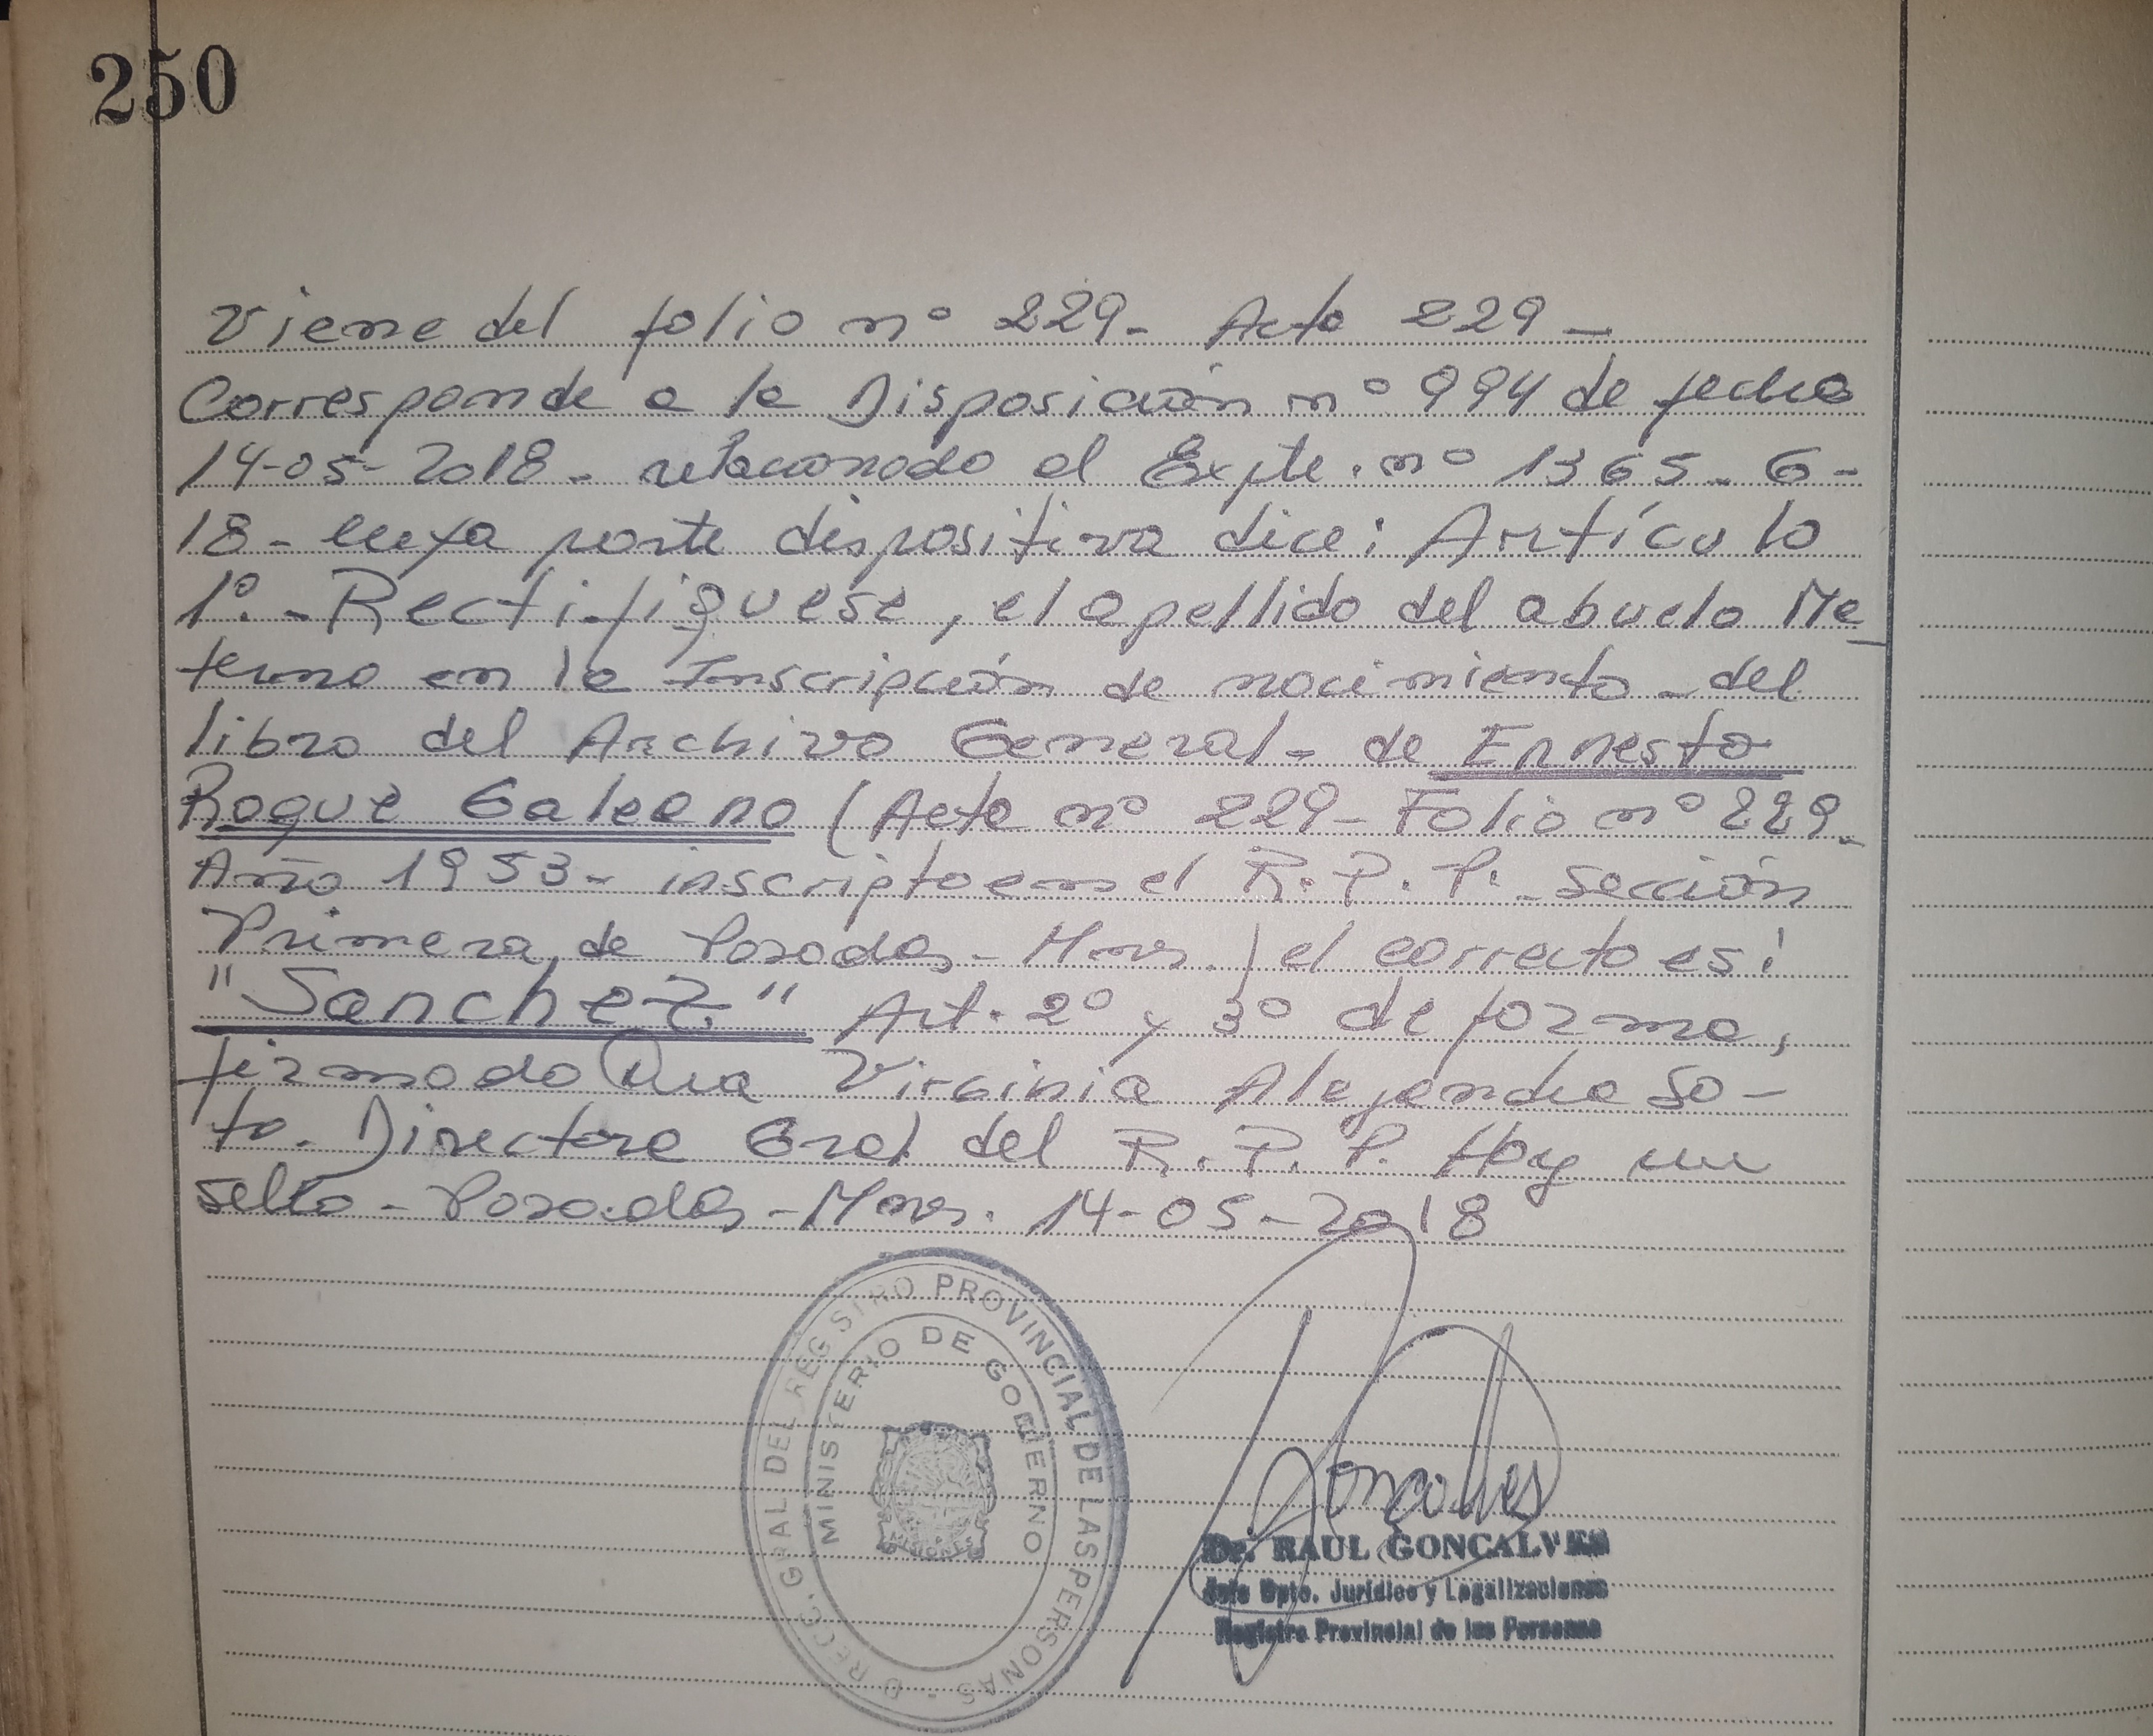 250
Viene del folio nº 229- Acta 229 -
Corresponde a la Disposición nº 994 de fecha
14-05-2018- relacionado al Expte. nº 1365-G-
18- cuya parte dispositiva dice: Artículo
1º.- Rectifíquese, el apellido del abuelo Ma-
terno en la Inscripción de nacimiento - del
libro del Archivo General - de Ernesto
Roque Galeano (Acta nº 229- Folio nº 229-
Año 1953- inscripto en el R.P.P.- Sección
Primera, de Posadas- Mnes.) el correcto es:
"Sanchez" Art. 2º y 3º de forma,
firmado Dra Virginia Alejandra So-
to. Directora Gral del R.P.P. Hay un
sello - Posadas - Mnes. 14-05-2018
DIRECC. GRAL DEL REGSITRO PROVINCIAL DE LAS PERSONAS -
MINISTERIO DE GOBIERNO
MISIONES
Goncalves
Dr. RAUL GONCALVES
Jefe Dpto. Jurídico y Legalizaciones
Registro Provincial de las Personas